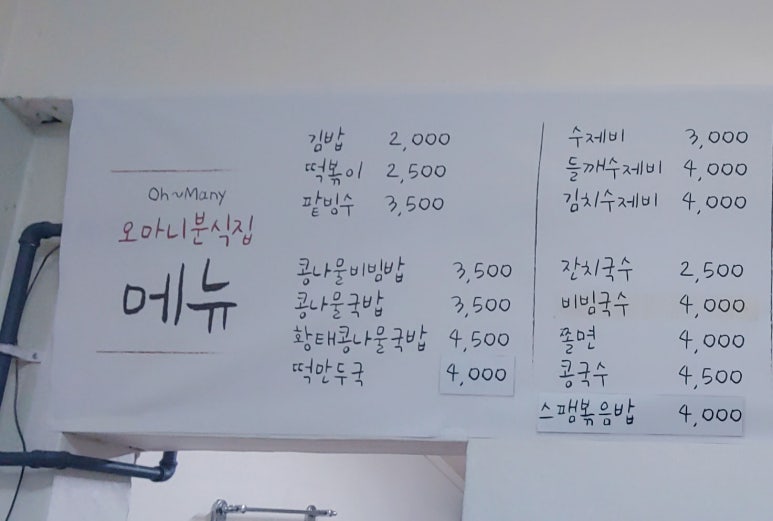 Oh~Many
오마니분식집
메뉴
김밥 2,000
떡볶이 2,500
팥빙수 3,500
콩나물비빔밥 3,500
콩나물국밥 3,500
황태콩나물국밥 4,500
떡만두국 4,000
수제비 3,000
들깨수제비 4,000
김치수제비 4,000
잔치국수 2,500
비빔국수 4,000
쫄면 4,000
콩국수 4,500
스팸볶음밥 4,000